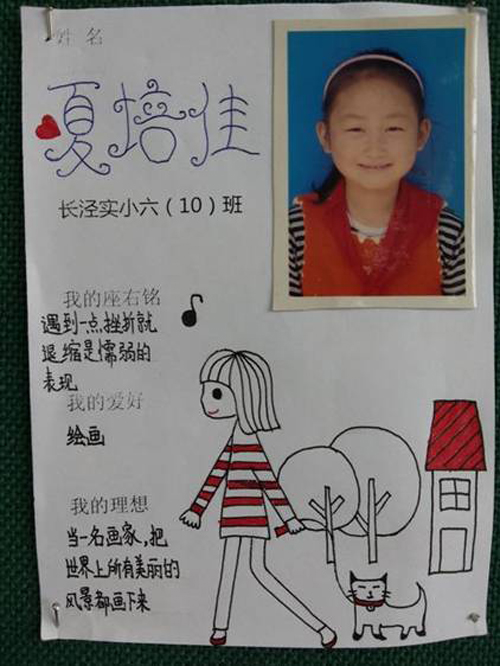 姓 名
夏培佳
长泾实小六（10）班
我的座右铭
遇到一点挫折就
退缩是懦弱的
表现
我的爱好
绘画
我的理想
当一名画家，把
世界上所有美丽的
风景都画下来